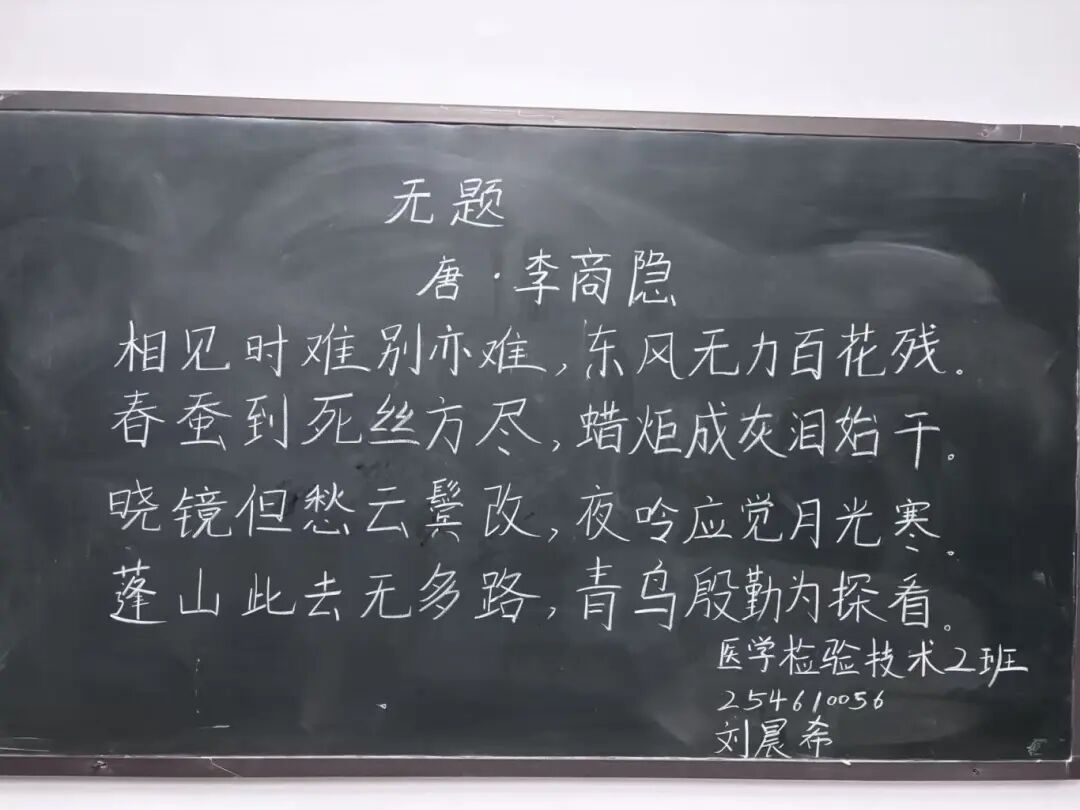 无题
唐·李商隐
相见时难别亦难,东风无力百花残.
春蚕到死丝方尽,蜡炬成灰泪始干。
晓镜但愁云鬓改,夜吟应觉月光寒。
蓬山此去无多路,青鸟殷勤为探看。
医学检验技术2班
254610056
刘晨希